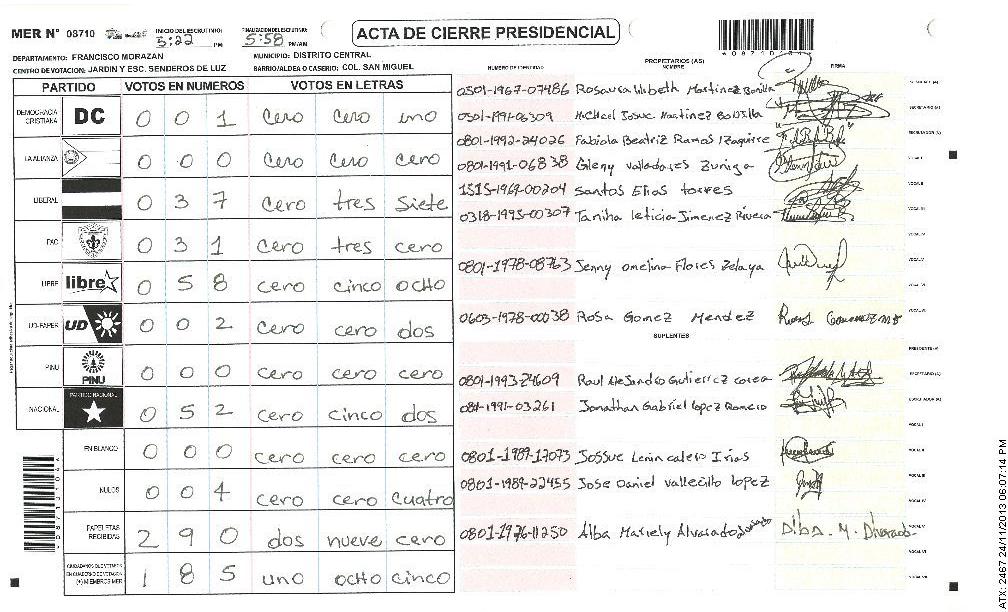 MER N° 08710
INICIO DEL ESCRUTINIO: 5:22 PM
FINALIZACION DEL ESCRUTINIO: 5:58 PM/AM
ACTA DE CIERRE PRESIDENCIAL
DEPARTAMENTO: FRANCISCO MORAZAN
MUNICIPIO: DISTRITO CENTRAL
CENTRO DE VOTACION: JARDIN Y ESC. SENDEROS DE LUZ
BARRIO/ALDEA O CASERIO: COL. SAN MIGUEL
PARTIDO VOTOS EN NUMEROS VOTOS EN LETRAS
DEMOCRACIA CRISTIANA DC 0 0 1 cero cero uno
LA ALIANZA 0 0 0 cero cero cero
LIBERAL 0 3 7 cero tres siete
PAC 0 3 1 cero tres cero
LIBRE libre 0 5 8 cero cinco ocho
UD-FAPER UD 0 0 2 cero cero dos
PINU PINU 0 0 0 cero cero cero
NACIONAL PARTIDO NACIONAL 0 5 2 cero cinco dos
EN BLANCO 0 0 0 cero cero cero
NULOS 0 0 4 cero cero cuatro
PAPELETAS RECIBIDAS 2 9 0 dos nueve cero
CIUDADANOS QUE VOTARON EN CUADERNO DE VOTACION (+) MIEMBROS MER 1 8 5 uno ocho cinco
NUMERO DE IDENTIDAD PROPIETARIOS (AS) NOMBRE FIRMA
0501-1967-07486 Rosaura Martinez Bonilla
Michael Josue Martinez Bonilla
0801-1992-24026 Fabiola Beatriz Ramos Izaguirre
0801-1991-06838 Gleny Valladares Zuniga
1515-1969-00204 Santos Elias torres
0318-1995-00307 Taniha leticia Jimenez Rivera
0801-1978-08763 Jenny omelina Flores Zelaya
0603-1978-00038 Rosa Gomez Mendez
SUPLENTES
0801-1993-24609 Raul Alejandro Gutierrez corea
081-1991-03261 Jonathan Gabriel lopez Romero
0801-1989-17073 Jossue Lenin calero Irias
0801-1989-22455 Jose Daniel Vallecillo lopez
0801-1976-11250 Alba Mariely Alvarado
ATX: 2467 24/11/2013 06:07:14 PM